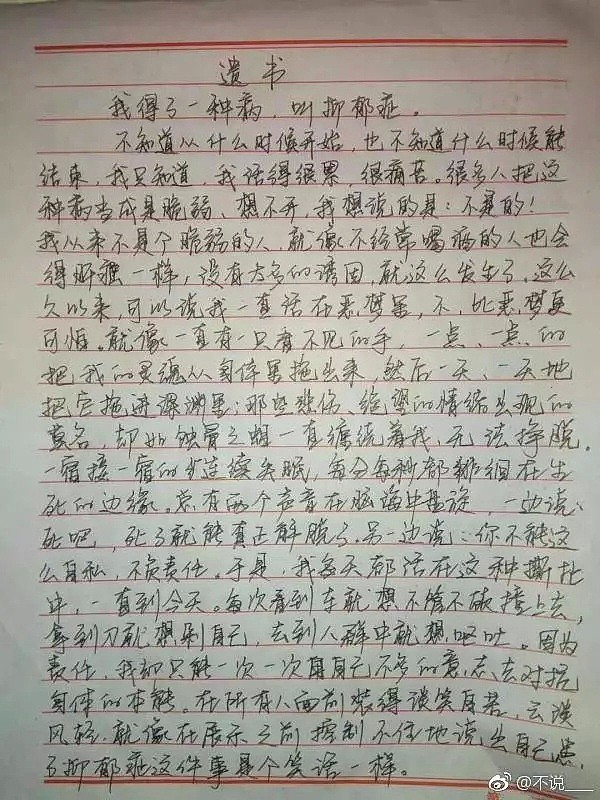 遗书
我得了一种病，叫抑郁症。
不知道从什么时候开始，也不知道什么时候能
结束，我只知道，我活得很累，很痛苦。很多人把这
种病当成是脆弱、想不开，我想说的是：不是的！
我从来不是个脆弱的人，就像不经常喝酒的人也会
得肝癌一样，没有太多的诱因，就这么发生了，这么
久以来，可以说我一直活在恶梦里，不，比恶梦更
可怕。就像一直有一只看不见的手，一点、一点的
把我的灵魂从身体里拖出来，然后一天、一天地
把它拖进深渊里；那些悲伤、绝望的情绪出现的
莫名，却如蚀骨之蛆一直缠绕着我，无法挣脱。
一宿接一宿的连续失眠，每分每秒都徘徊在生
死的边缘。总有两个声音在脑海中盘旋，一边说：
死吧，死了就能真正解脱了。另一边说：你不能这
么自私，不负责任。于是，我每天都活在这种撕扯
中，一直到今天。每次看到车就想不管不顾撞上去，
拿到刀就想剁自己，去到人群中就想呕吐。因为
责任，我却只能一次一次用自己不多的意志，去对抗
身体的本能。在所有人面前装得谈笑自若，云淡
风轻，就像在展示之前控制不住地说出自己患
了抑郁症这件事是个笑话一样。
@不说___